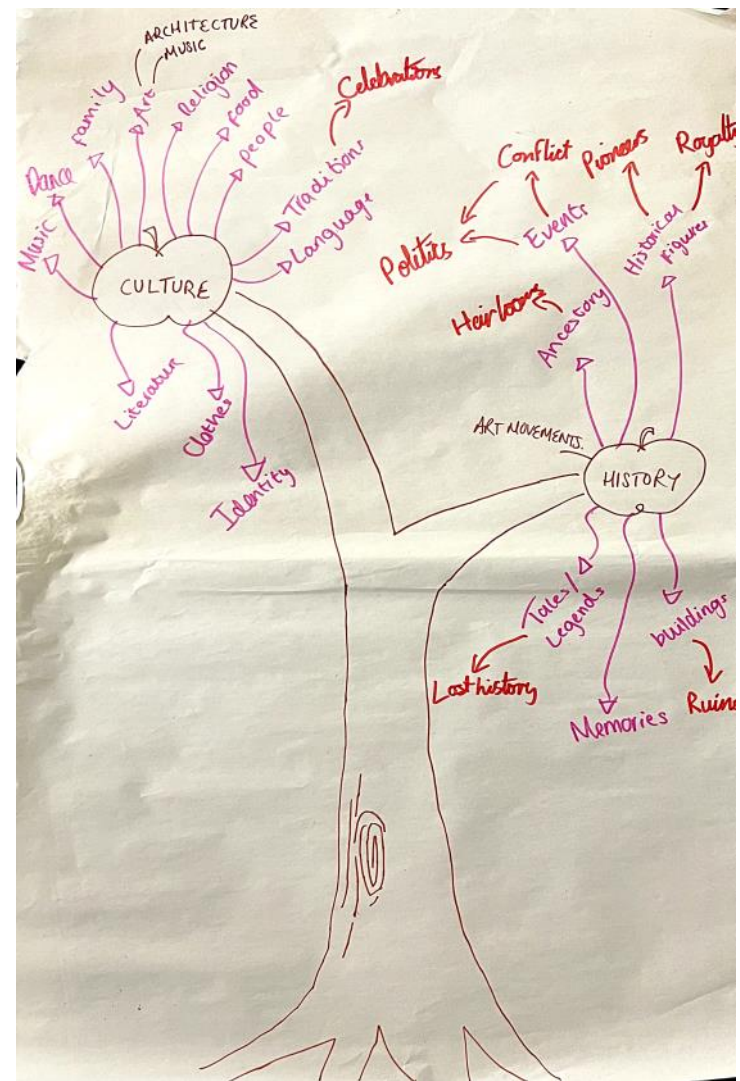 ARCHITECTURE
MUSIC
Music
Dance
Family
Art
Religion
Food
people
Celebrations
Traditions
Language
CULTURE
Literatur
Clothes
Identity
Conflict
Pioneers
Royalty
Politics
Events
Historical
Figures
Heirlooms
Ancestory
ART MOVEMENTS.
HISTORY
Tales/
Legends
Lost history
Memories
buildings
Ruins